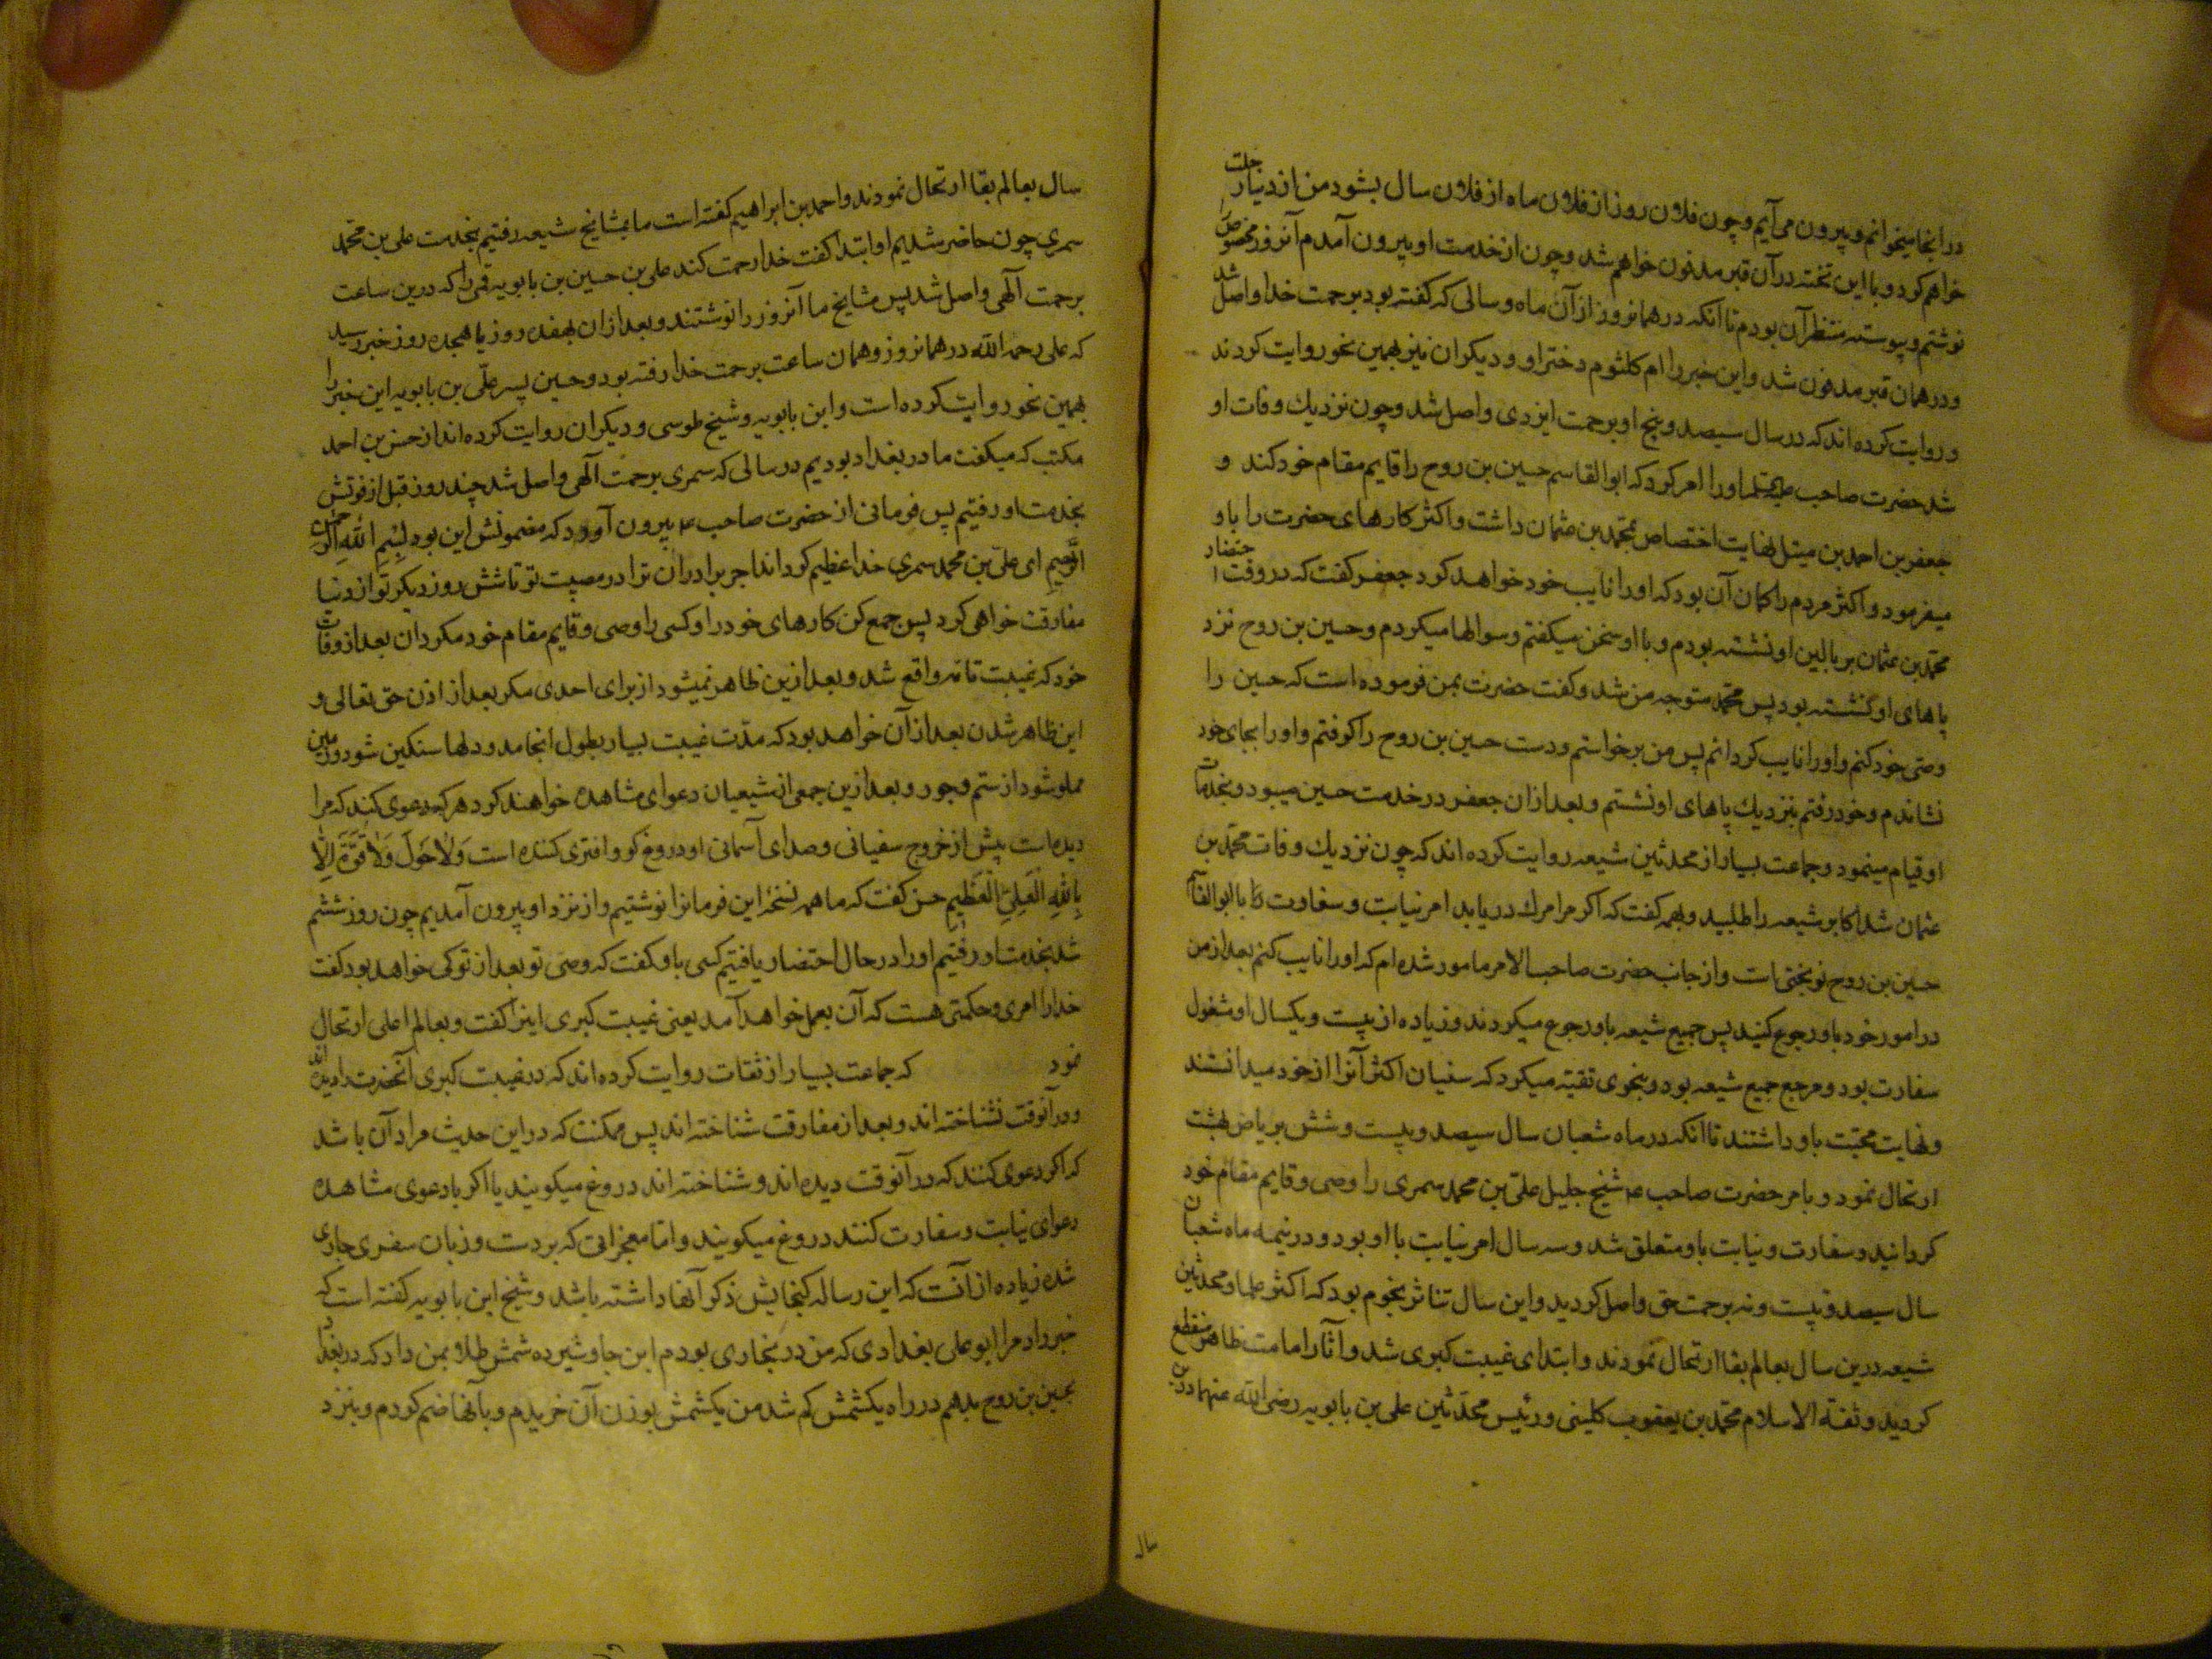 در انجا میخوانم و بیرون می‌آیم و چون فلان روز از فلان ماه از فلان سال بشود من از دنیا رحلت
خواهم کرد و با این تخته در آن قبر مدفون خواهم شد و چون از خدمت او بیرون آمدم آنروز مخصوص
نوشتم و پیوسته منتظر آن بودم تا آنکه در همانروز از آن ماه و سالی که گفته بود برحمت خدا واصل شد
و در همان قبر مدفون شد و این خبر را ام کلثوم دختر او و دیکران نیز بهمین نحو روایت کردند
و روایت کرده‌اند که در سال سیصد و پنج او برحمت ایزدی واصل شد و چون نزدیك وفات او
شد حضرت صاحب او را امر کرد که ابو القاسم حسین بن روح را قایم مقام خود کند و
جعفر بن احمد بن متیل نهایت اختصاص بمحمد بن عثمان داشت و اکثر کارهای حضرت را باو
میفرمود و اکثر مردم را کمان آن بود که او را نایب خود خواهد کرد جعفر کفت که در وقت احتضار
محمد بن عثمان بر بالین او نشسته بودم و با او سخن میکفتم و سوالها میکردم و حسین بن روح نزد
پاهای او نشسته بود پس محمد متوجه من شد و کفت حضرت بمن فرموده است که حسین را
وصی خود کنم و او را نایب کردانم پس من برخواستم و دست حسین بن روح را کرفتم و او را بجای خود
نشاندم و خود رفتم بنزدیك پاهای او نشستم و بعد از ان جعفر در خدمت حسین میبود و بخدمات
او قیام مینمود و جماعت بسیار از محدثین شیعه روایت کرده‌اند که چون نزدیك وفات محمد بن
عثمان شد اکابر شیعه را طلبید و بهمه کفت که اکر مرا مرك دریابد امر نیابت و سفارت با ابو القاسم
حسین بن روح نوبختی است و از جانب حضرت صاحب الامر مامور شده‌ام که او را نایب کنم بعد از من
در امور خود باو رجوع کنید پس جمیع شیعه باو رجوع میکردند و زیاده از بیست و یکسال او مشغول
سفارت بود و مرجع جمیع شیعه بود و بنحوی تقیه میکرد که سنیان اکثر آنرا از خود میدانستند
و نهایت محبت باو داشتند تا آنکه در ماه شعبان سال سیصد و بیست و شش بریاض بهشت
ارتحال نمود و بامر حضرت صاحب ع شیخ جلیل علی بن محمد سمری را وصی و قایم مقام خود
کردانید و سفارت و نیابت باو متعلق شد و سه سال امر نیابت با او بود و در نیمه ماه شعبان
سال سیصد و بیست و نه برحمت حق واصل کردید و این سال تناثر نجوم بود که اکثر علما و محدثین
شیعه درین سال بعالم بقا ارتحال نمودند و ابتدای غیبت کبری شد و آثار امامت ظاهر منقطع
کردید و ثقة الاسلام محمد بن یعقوب کلینی و رئیس محدثین علی بن بابویه رضی الله عنهما درین
سال
سال بعالم بقا ارتحال نمودند و احمد بن ابراهیم کفته است ما بمشایخ شیعه رفتیم بخدمت علی بن محمد
سمری چون حاضر شدیم او ابتدا کفت خدا رحمت کند علی بن حسین بن بابویه قمی را که درین ساعت
برحمت آلهی واصل شد پس مشایخ ما آنروز را نوشتند و بعد از ان هفده روز یا هجده روز خبر رسید
که علی رحمه الله در همانروز و همان ساعت برحمت خدا رفته بود و حسین پسر علی بن بابویه این خبر را
بهمین نحو روایت کرده است و ابن بابویه و شیخ طوسی و دیکران روایت کرده‌اند از حسن بن احمد
مکتب که میکفت ما در بغداد بودیم در سالی که سمری برحمت آلهی واصل شد چند روز قبل از فوتش
بخدمت او رفتیم پس فرمانی از حضرت صاحب ع بیرون آورد که مضمونش این بود بِسْمِ اللهِ الرَّحمنِ
الرَّحِیمِ ای علی بن محمد سمری خدا عظیم کرداند اجر برادران ترا در مصیبت تو تا شش روز دیکر تو از دنیا
مفارقت خواهی کرد پس جمع کن کارهای خود را و کسی را وصی و قایم مقام خود مکردان بعد از وفات
خود که غیبت تامه واقع شد و بعد ازین ظاهر نمیشود از برای احدی مکر بعد از اذن حق تعالی و
این ظاهر شدن بعد از آن خواهد بود که مدت غیبت بسیار بطول انجامد و دلها سنکین شود و زمین
مملو شود از ستم و جور و بعد ازین جمعی از شیعیان دعوای مشاهده خواهند کرد هر که دعوی کند که مرا
دیده است پیش از خروج سفیانی و صدای آسمانی او دروغ کو و افتری کننده است وَلَا حَولَ وَلَا قُوَّةَ اِلَّا
بِاللهِ الْعَلِیِّ الْعَظِیمِ حسن کفت که ما همه نسخه این فرمانرا نوشتیم و از نزد او بیرون آمدیم چون روز ششم
شد بخدمت او رفتیم او را در حال احتضار یافتیم کسی باو کفت که وصی تو بعد از تو کی خواهد بود کفت
خدا را امری و حکمتی هست که آن بعمل خواهد آمد یعنی غیبت کبری اینرا کفت و بعالم اعلی ارتحال
نمود که جماعت بسیار از ثقات روایت کرده‌اند که در غیبت کبری آنحضرت را دیده اند
و در آنوقت نشناخته‌اند و بعد از مفارقت شناخته‌اند پس ممکنست که در این حدیث مراد آن باشد
که اکر دعوی کنند که در آنوقت دیده‌اند و شناخته‌اند دروغ میکویند یا اکر با دعوی مشاهده
دعوای نیابت و سفارت کنند دروغ میکویند و اما معجزاتی که بر دست و زبان سفری جاری
شده زیاده از آنست که این رساله کنجایش ذکر آنها داشته باشد و شیخ ابن بابویه کفته است که
خبر داد مرا ابو علی بغدادی که من در بخاری بودم ابن جاوشیر ده شمش طلا بمن داد که در بغداد
بحسین بن روح بدهم در راه یکشمش کم شد من یکشمش بوزن آن خریدم و بآنها ضم کردم و بنزد